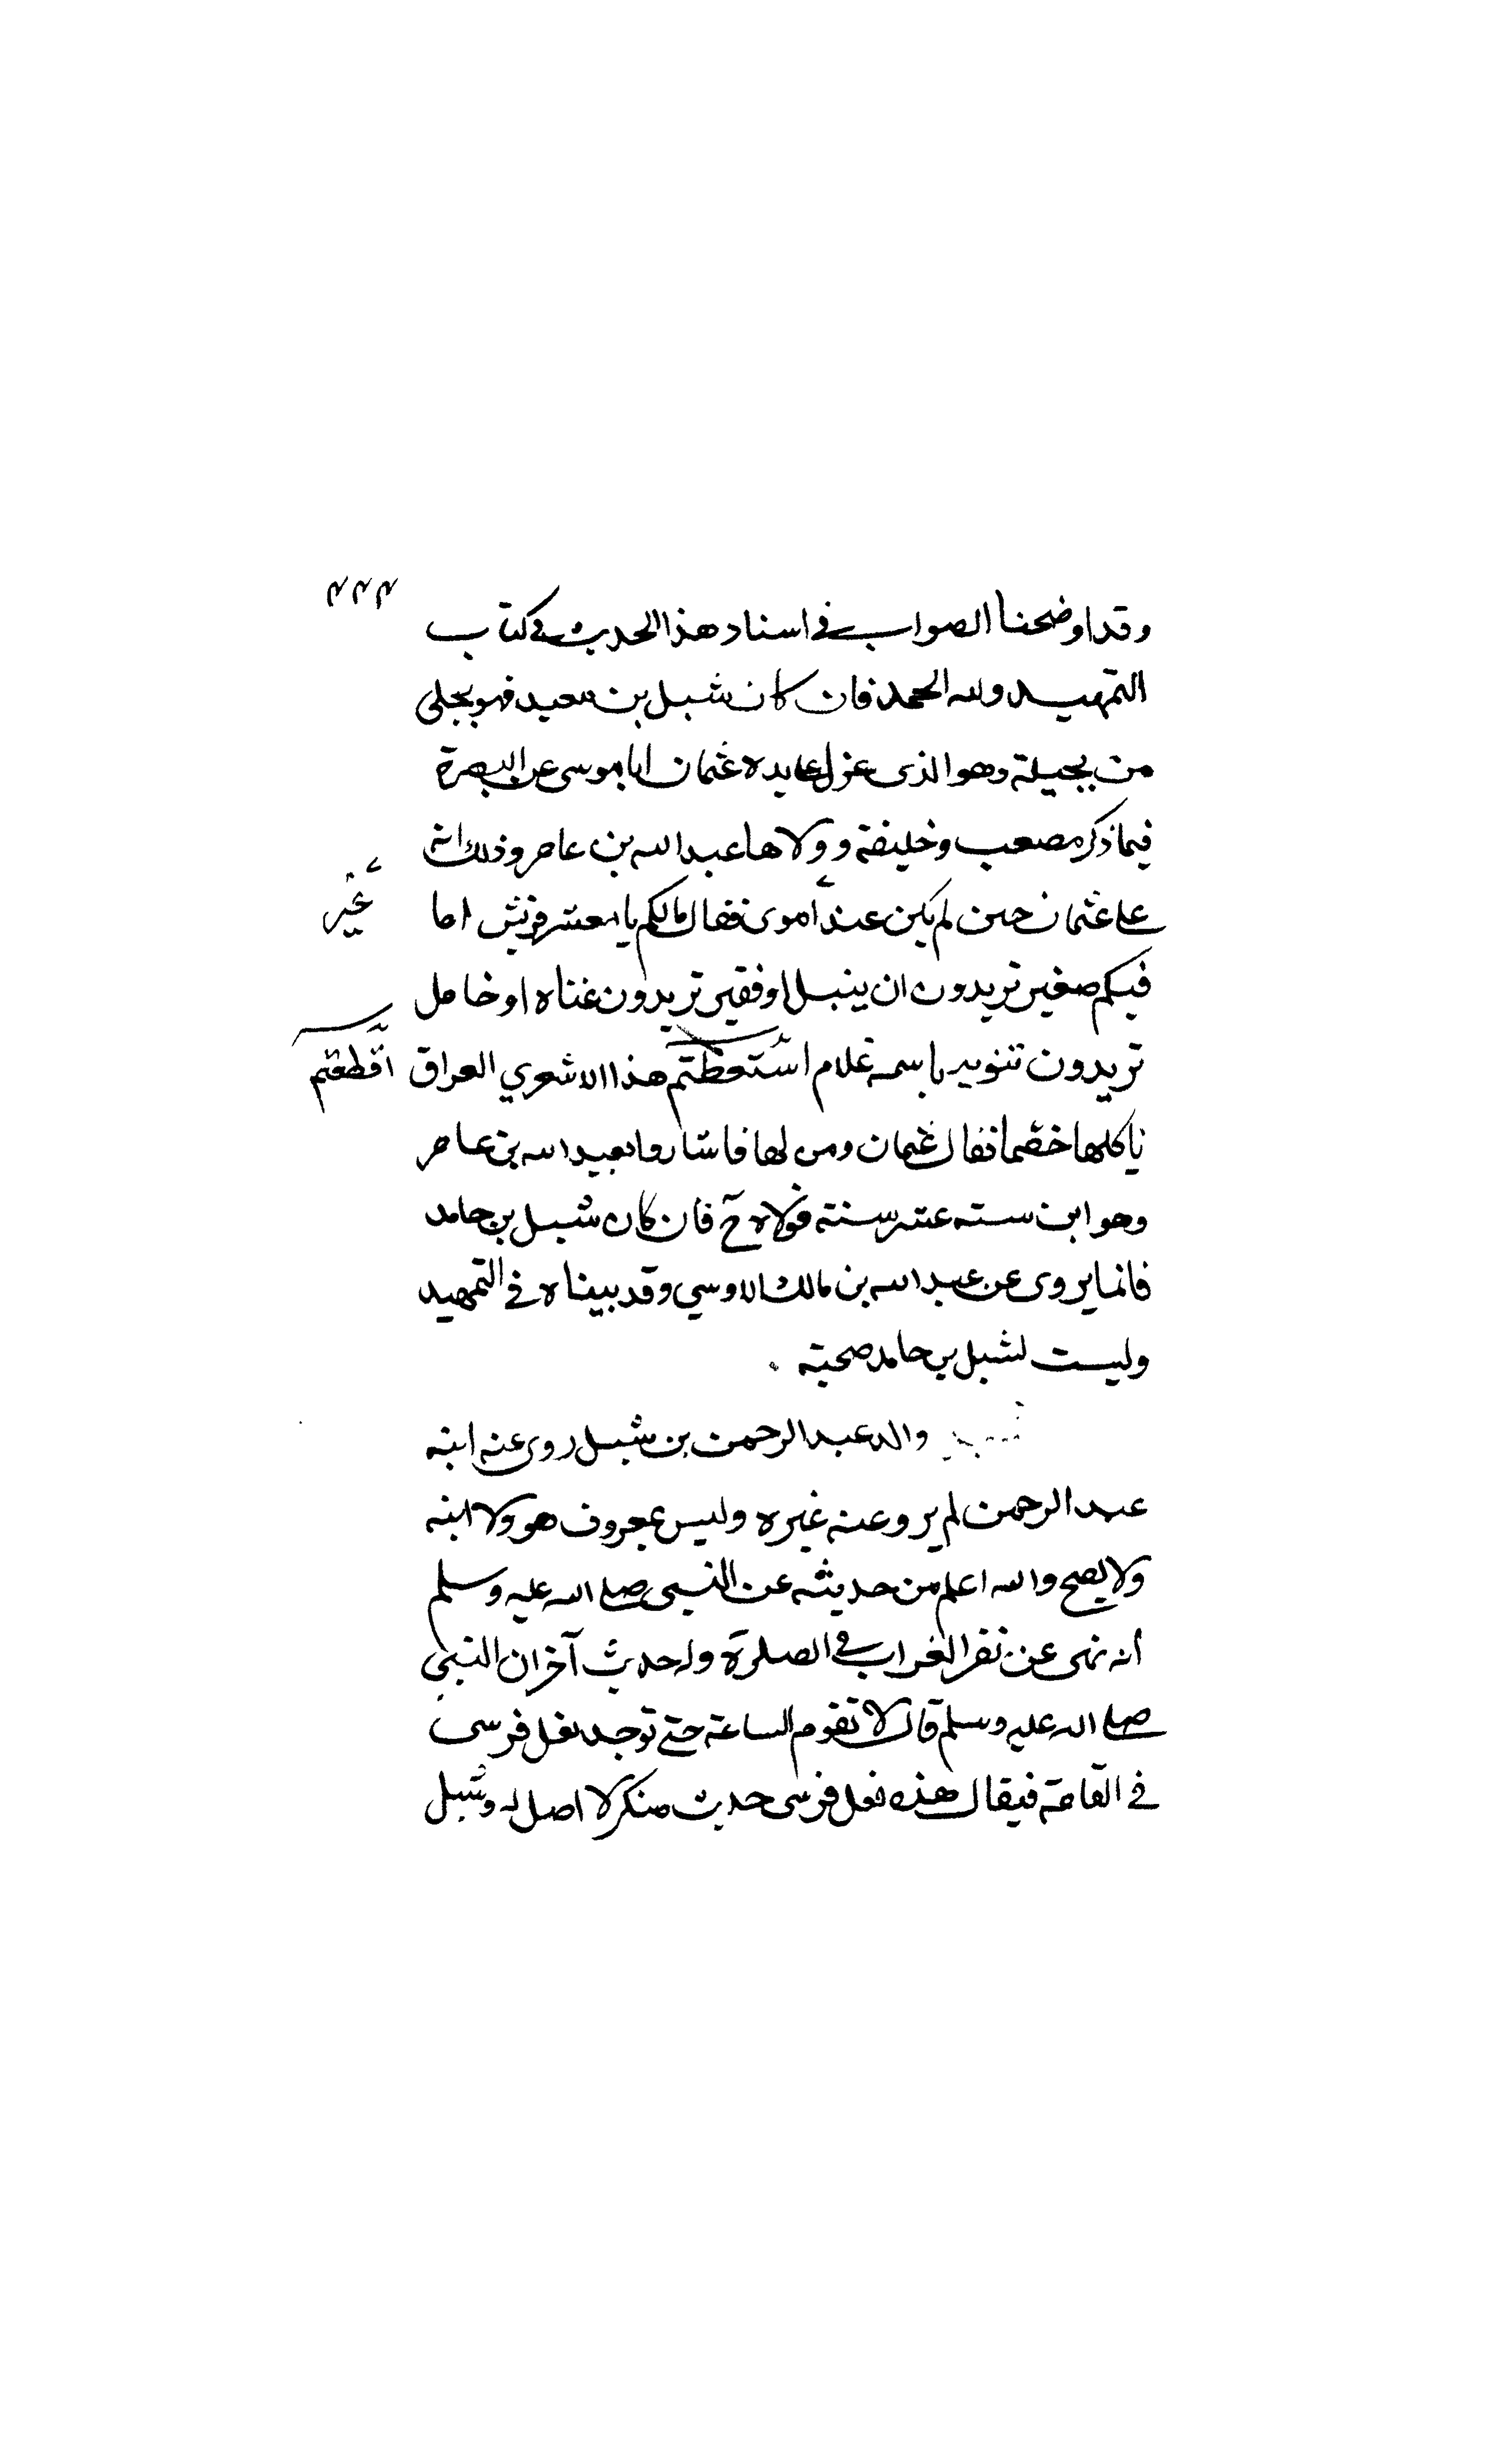 ٣٣٣
وقد اوضحنا الصواب في اسناد هذا الحديث في كتاب
التمهيد ولله الحمد فان كان شبل بن معبد فهو بجلى
من بجيلة وهو الذى عزل على يده عثمان ابا موسى عن البصرة
فيما ذكر مصعب وخليفة و ولاها عبد الله بن عامر وذلك انه
على عثمان حين لم يكن عنده أموى فقال مالكم يا معشر قريش اما
غير
فيكم صغير تريدون ان ينبل او فقير تريدون غناه او خامل
تريدون تنويه باسمه علام استعظتم هذا الاشعري العراق
اقطعتم
ياكلها خضما فقال عثمان ومن لها فاشاروا بعبد الله بن عامر
وهو ابن سته عشر سنة فولاه ح فان كان شبل بن حامد
فانما يروى عن عبد الله بن مالك الاوسي وقد بيناه في التمهيد
وليست لشبل بن حامد صحبة .
والد عبد الرحمن بن شبل روى عنه ابنه
عبد الرحمن لم يرو عنه غيره وليس بمعروف هو ولا ابنه
ولا يصح والله اعلم من حديثه عن النبى صلى الله عليه وسلم
أنه نهى عن نقر الغراب في الصلوة وله حديث آخر ان النبي
صلى الله عليه وسلم قال لا تقوم الساعة حتى توجد نعل قرشى
في القامة فيقال هذه نعل قرشى حديث منكر لا اصل له وشبل